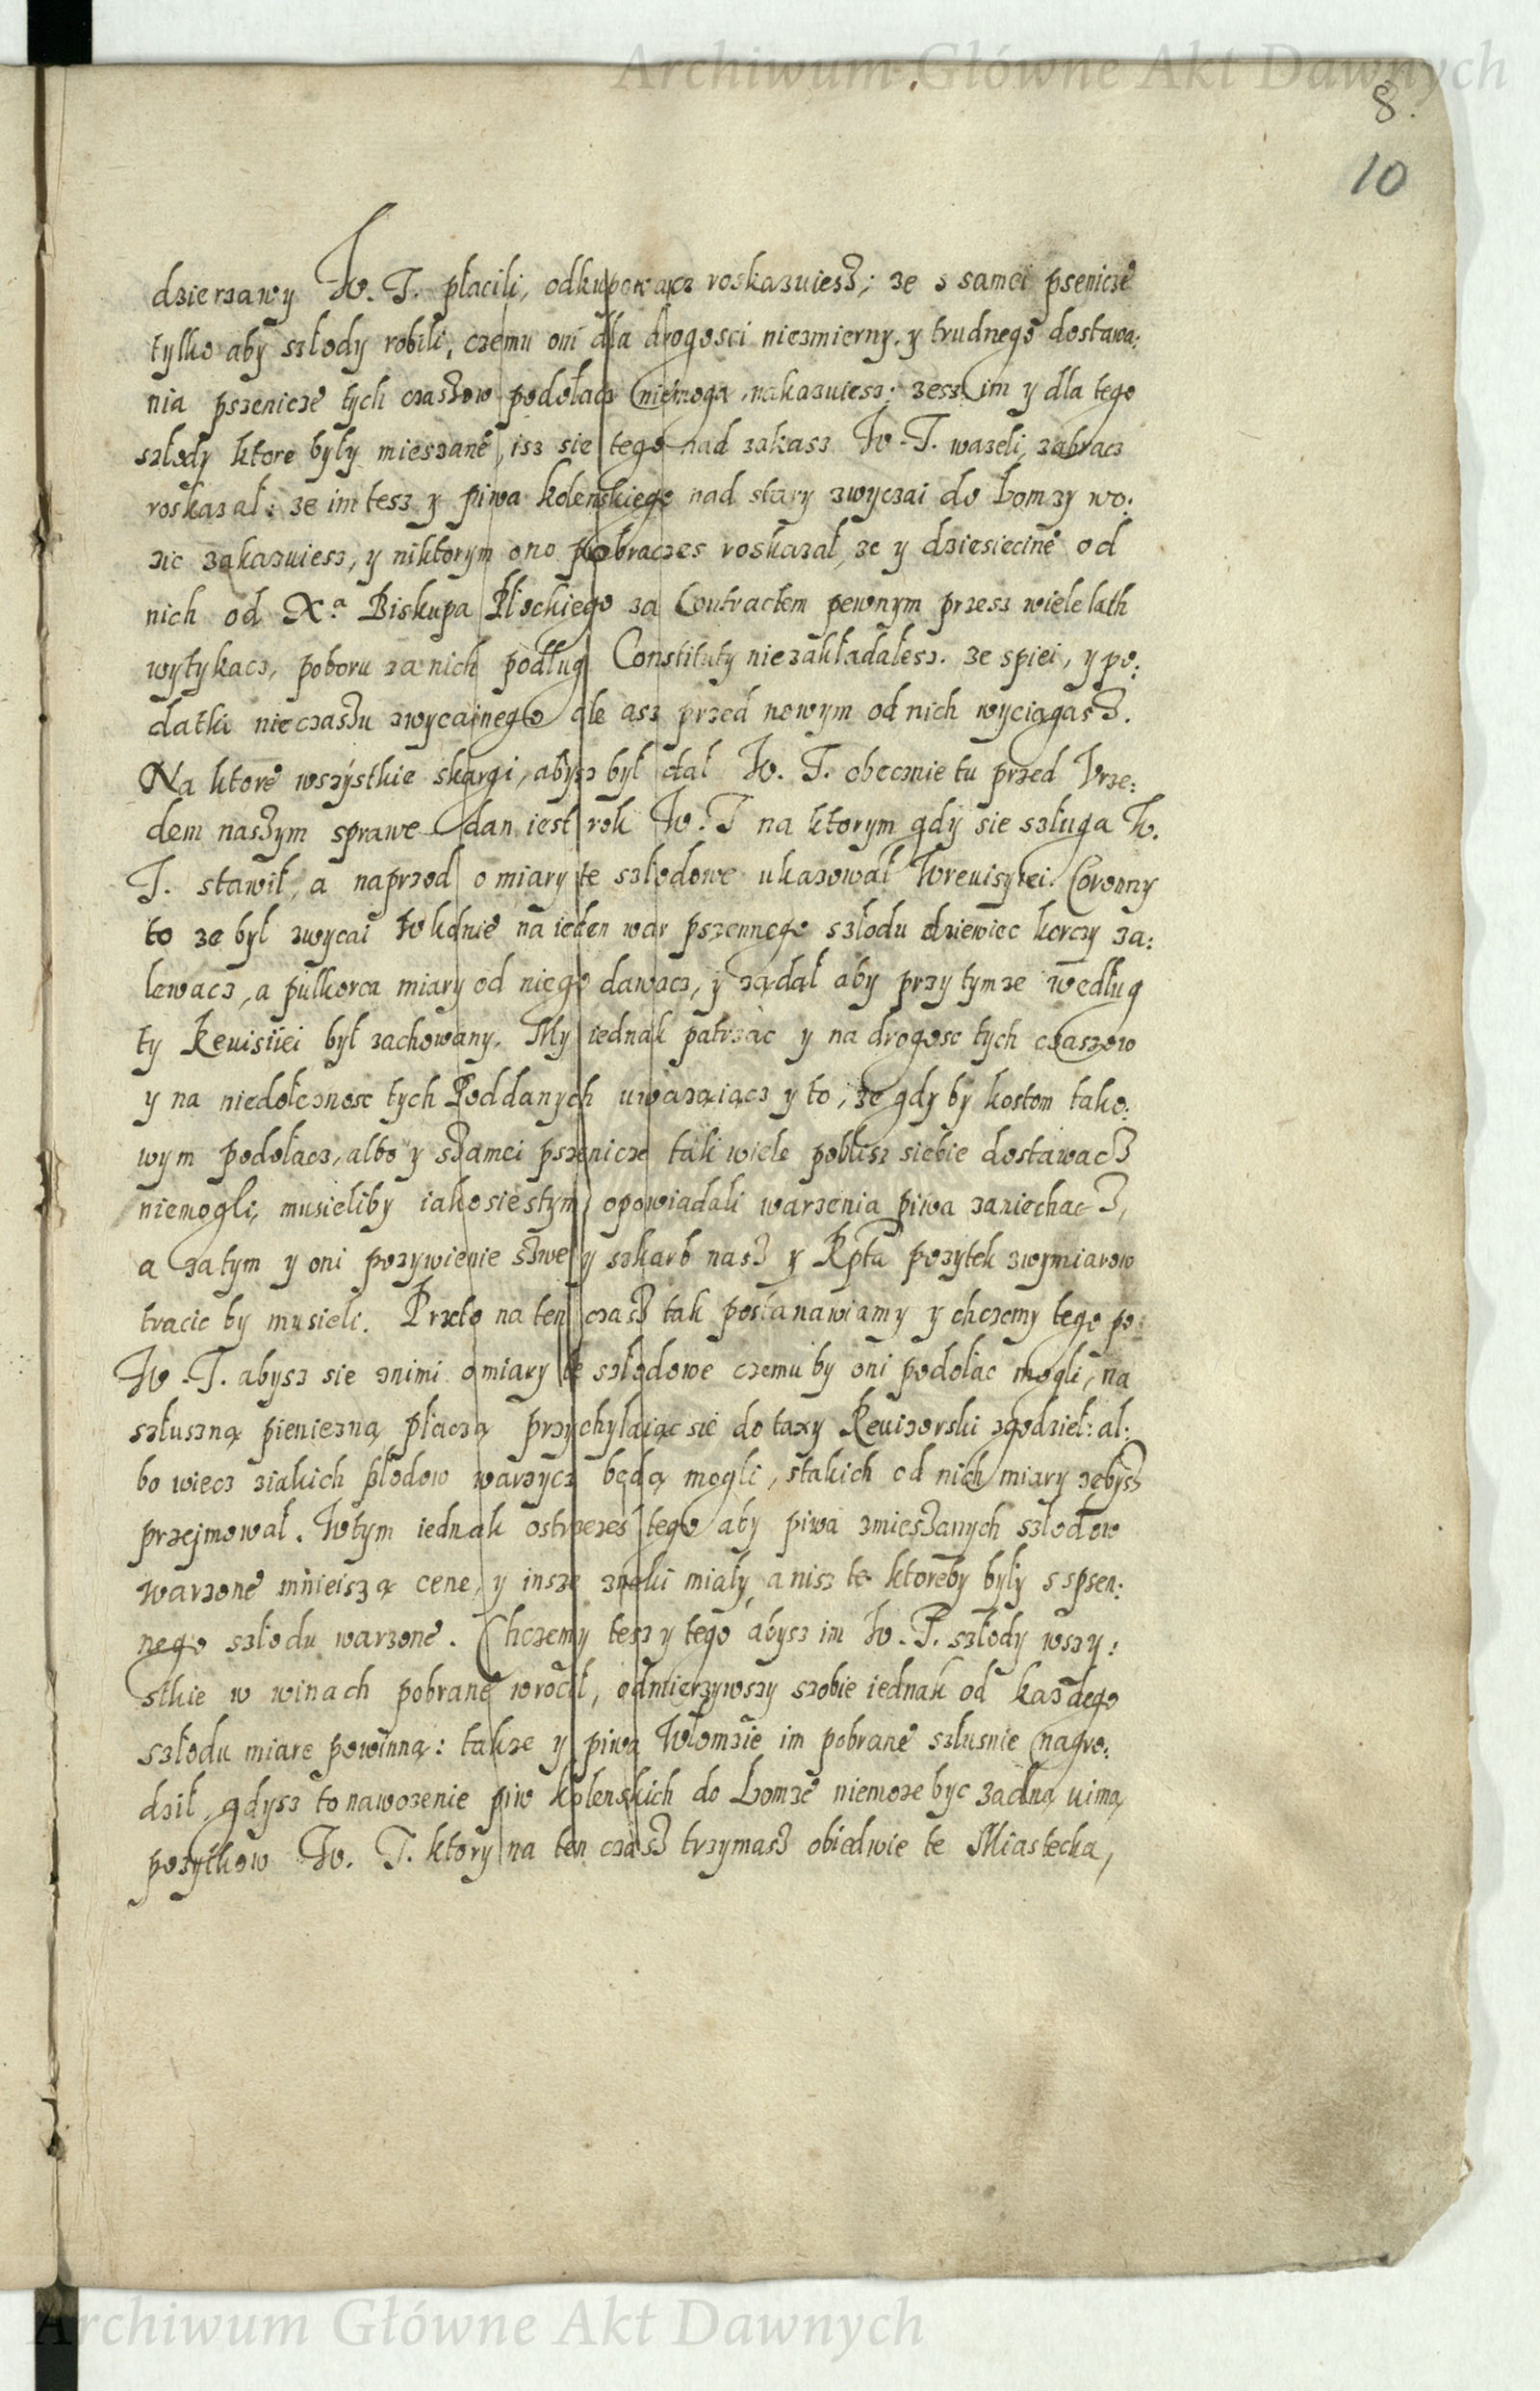 Archiwum Główne Akt Dawnych
8.
10
dzierzawy W. T. płacili, odkupowacz roskazuiesz; ze s samei psenicze
tylko aby szłody robili, czemu oni dla drogosci niezmierny. y trudnego dostawa:
nia pszenicze tych czaszow podołacz niemogą, nakazuiesz: zesz im y dla tego
szłody ktore były mieszane, isz sie tego nad zakasz W. T. wazeli, zabracz
roskazał: ze im tesz y piwa kolenskiego nad stary zwyczai do Łomzy wo:
zic zakazuiesz, y niktorym ono pobraczes roskazał, ze y dziesiecine od
nich od Xª Biskupa Płockiego za Contractem pewnym przesz wiele lath
wytykacz, poboru za nich podług Constituty niezakładałesz. ze spiei, y po:
datki nie czaszu zwycainego ale asz przed nowym od nich wyciągasz.
Na ktore wszystkie skargi, abysz był dał W. T. obecznie tu przed Vrze:
dem naszym sprawe dan iest rok W. T na ktorym gdy sie szługa W.
T. stawił, a naprzod o miary te szłodowe ukazował Wreuisyiei Coronny
to ze był zwycai Wkolnie na ieden war pszennego szłodu dziewiec korczy za:
lewacz, a pułkorca miary od niego dawacz, y ządał aby przy tymze według
ty Reuisiiei był zachowany. My iednak patrzac y na drogosc tych czaszow
y na niedołcznosc tych Poddanych uwazaiącz y to, ze gdy by kostom tako:
wym podołacz, albo y szamei pszenicze tak wiele poblisz siebie dostawacz
niemogli, musieliby iako sie stym opowiadali warzenia piwa zaniechacz,
a zatym y oni pozywienie szwe y szkarb nasz y Rptą pozytek zwymiarow
tracic by musieli. Przeto na ten czasz tak postanawiamy y chczemy tego po
W. T. abysz sie znimi o miary te szłodowe czemu by oni podołac mogli, na
szłuszną pieniezną płaczą przychylaiąc sie do taxy Reuizorski zgodził: al:
bo wiecz ziakich szłodow warzycz będą mogli, stakich od nich miary zebysz
przejmował. Wtym iednak ostrzezes tego aby piwa zmieszanych szłodow
warzone mnieiszą cene, y insze znaki miały, a nisz te ktoreby były s spsen:
nego szłodu warzone. Chczemy tesz y tego abysz im W. T. szłody wszy:
stkie w winach pobrane wrocił, odmierzywszy szobie iednak od kazdego
szłodu miare powinną: takze y piwa Włomzie im pobrane szłusnie nagro:
dził, gdysz to nawozenie piw kolenskich do Łomze niemoze byc zadną uimą
pozytkow W. T. ktory na ten czasz trzymasz obiedwie te Miastecka,
Archiwum Główne Akt Dawnych